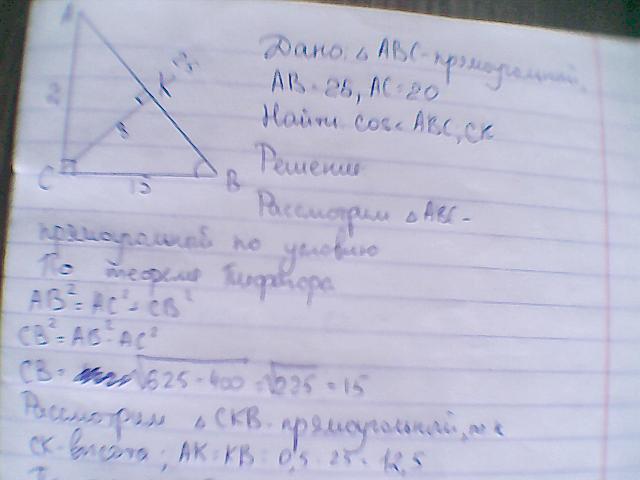 A
K
C
B
Дано: △ABC-прямоугольный,
AB=25, AC=20
Найти: cos∠ABC, CK
Решение
Рассмотрим △ABC-
прямоугольный по условию
По теореме Пифагора
AB²=AC²+CB²
CB²=AB²-AC²
CB= √625-400=√225=15
Рассмотрим △CKB-прямоугольный, т.к
CK-высота; AK=KB=0,5·25=12,5